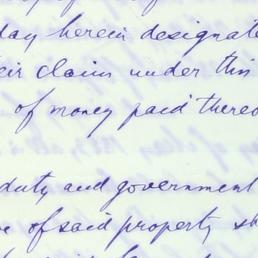 day herein designate
eir claim under this
of money paid thereo
duty and government
e of said property sh